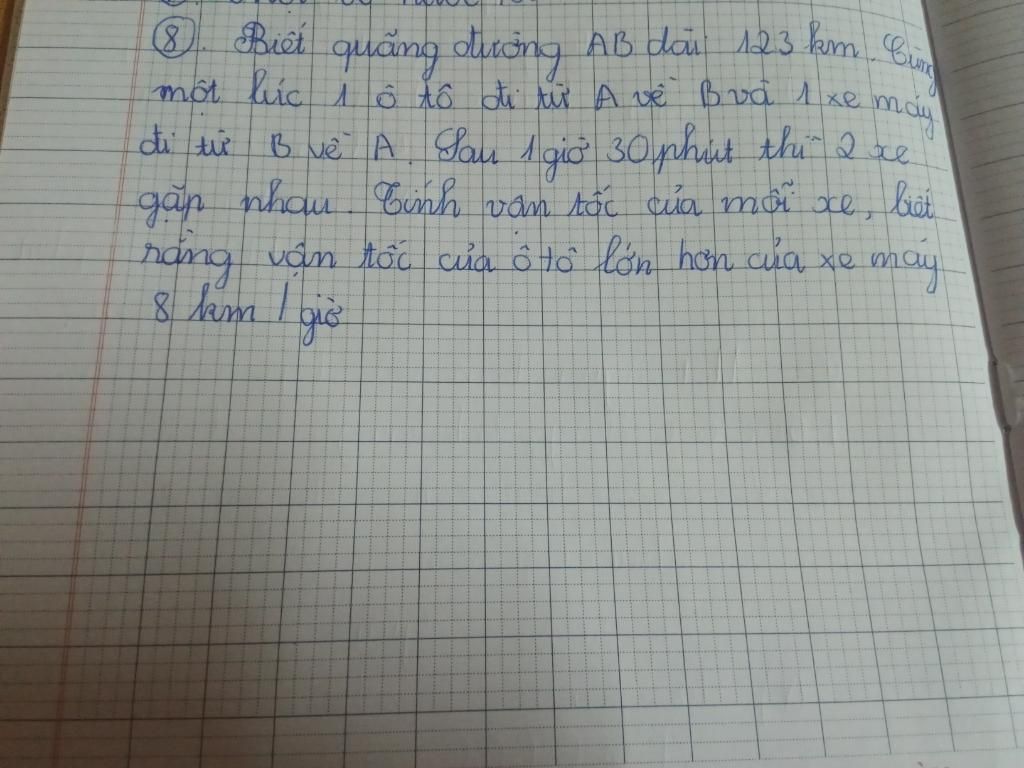 ⑧. Biết quãng đường AB dài 123 km. Cùng
một lúc 1 ô tô đi từ A về B và 1 xe máy
đi từ B về A. Sau 1 giờ 30 phút thì 2 xe
gặp nhau. Tính vận tốc của mỗi xe, biết
rằng vận tốc của ô tô lớn hơn của xe máy
8 km / giờ